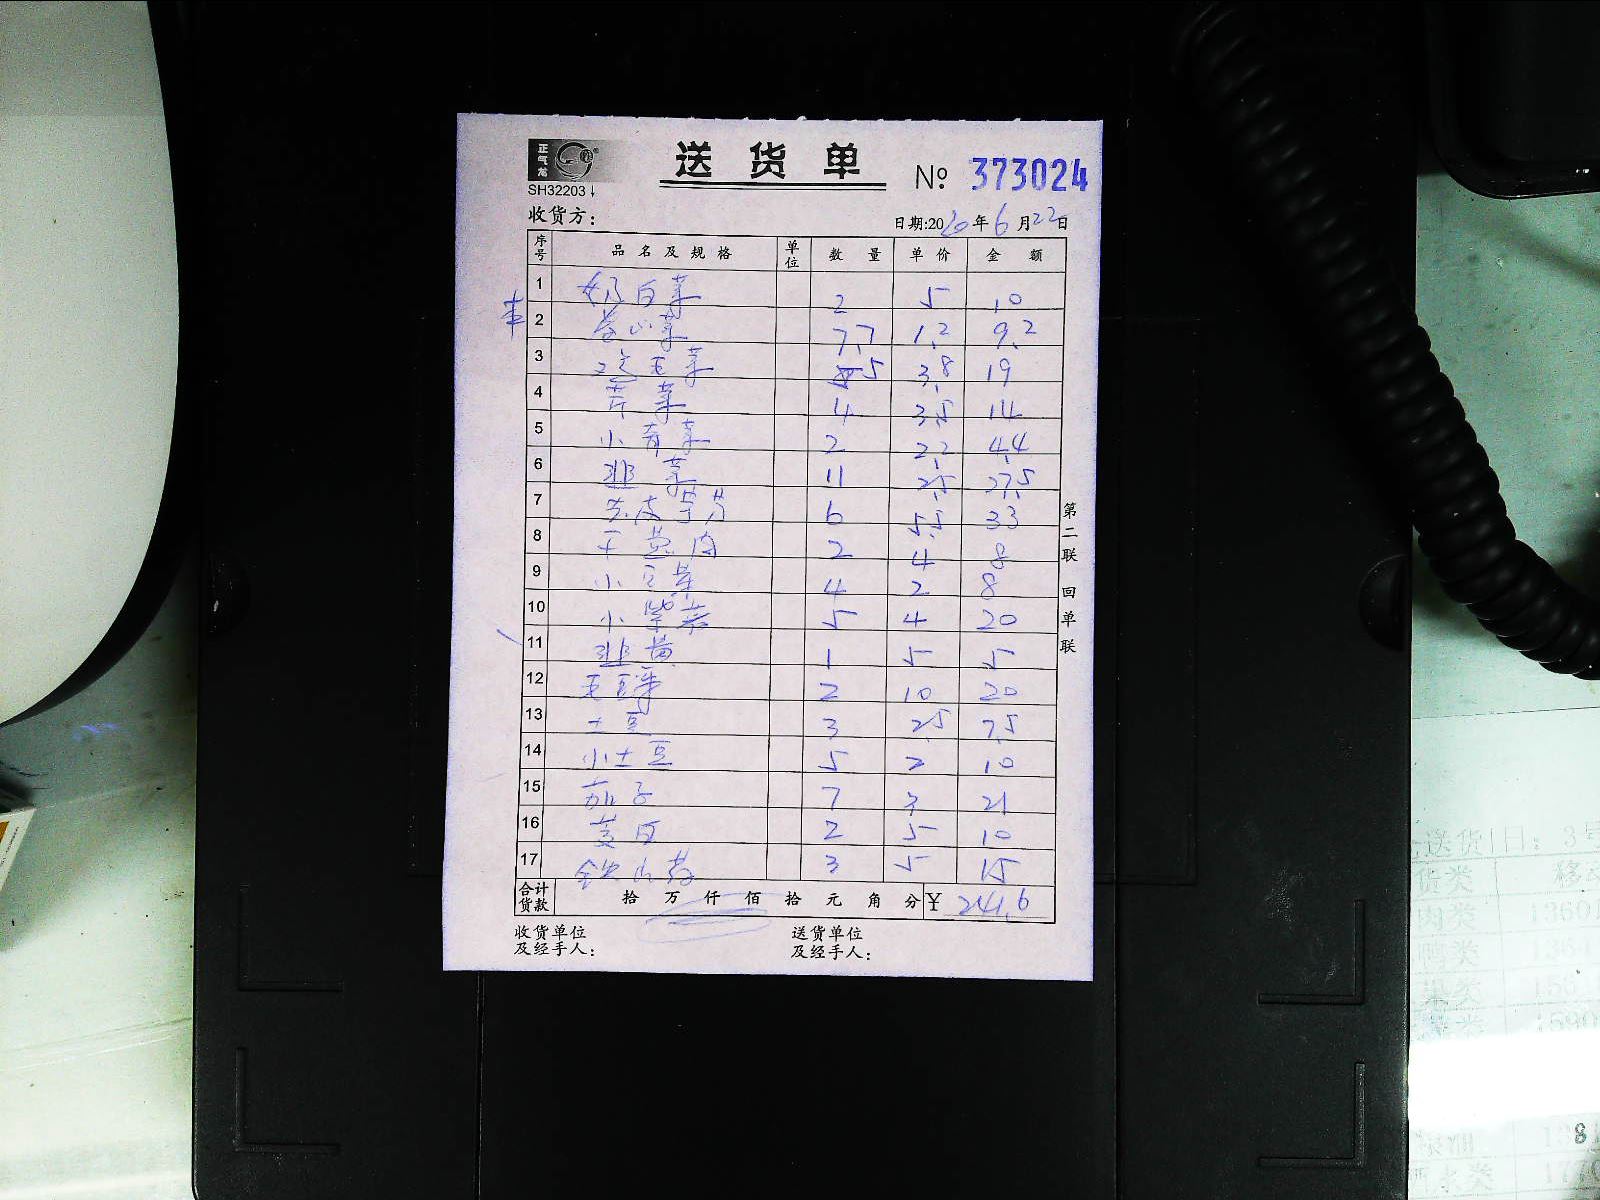 正气龙
SH32203
送货单
№ 373024
收货方：
日期:2020年6月22日
序号 品名及规格 单位 数量 单价 金额
1 奶白菜 2 5 10
2 卷心菜 7.7 1.2 9.2
3 菜 5 3.8 19
4 芹菜 4 3.5 14
5 小青菜 2 2.2 4.4
6 韭菜 11 2.5 27.5
7 去皮芋艿 6 5.5 33
8 2 4 8
9 小 4 2 8
10 小 5 4 20
11 韭黄 1 5 5
12 毛豆 2 10 20
13 土豆 3 2.5 7.5
14 小土豆 5 2 10
15 茄子 7 3 21
16 茭白 2 5 10
17 铁山药 3 5 15
合计货款 拾 万 仟 佰 拾 元 角 分 ¥ 241.6
第二联 回单联
收货单位
及经手人：
送货单位
及经手人：
送货1日：3号
货类 移
肉类 1360
类
类
类 1590
类 177
8